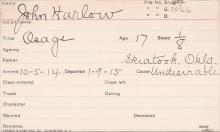 Name John Harlow File No.
" G. 3566
Indian Name
Tribe Osage Age 17 Blood 1/8
Agency
Father Skiatook, Okla.
Arrived 10-5-14 Departed 1-9-15 Cause Undesirable
Entered Class Class left
Trade Outing
Character
Married
Deceased